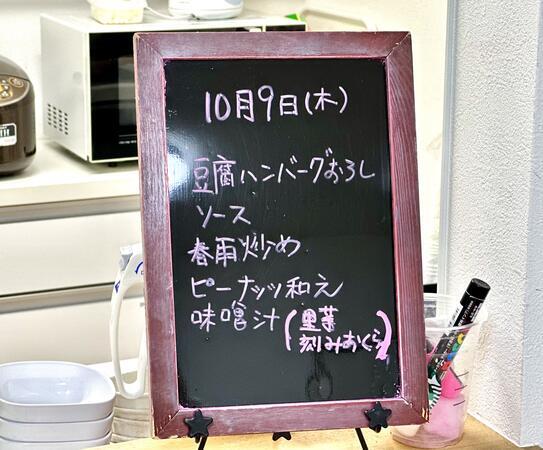 10月9日(木)
豆腐ハンバーグおろし
ソース
春雨炒め
ピーナッツ和え
味噌汁(里芋
刻みおくら)